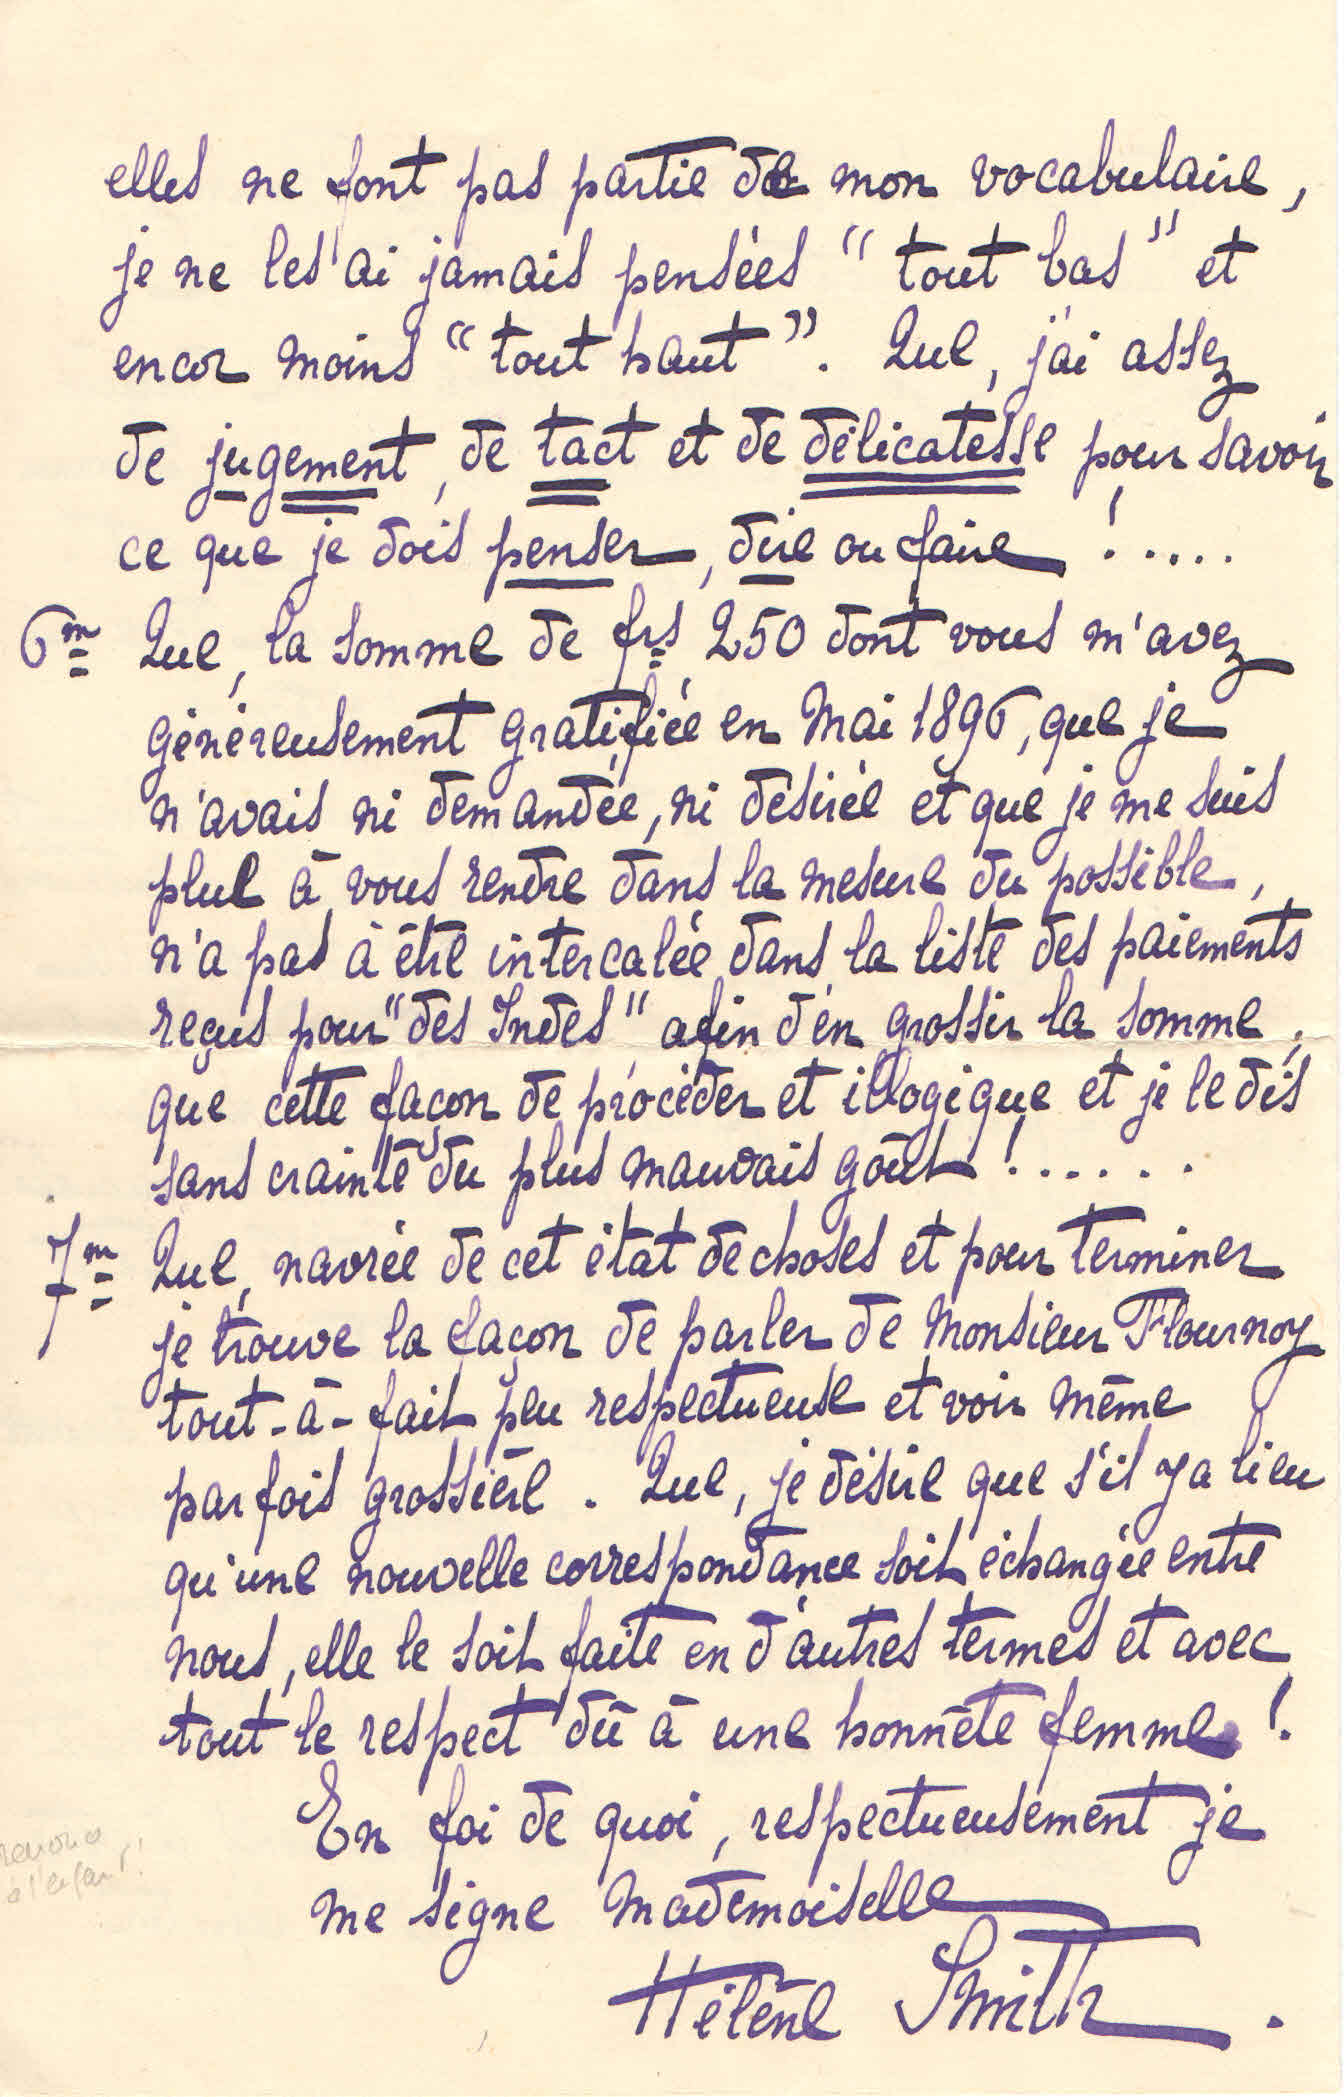 elles ne font pas partie de mon vocabulaire,
je ne les ai jamais pensées "tout bas" et
encor moins "tout haut". Que, j'ai assez
de jugement, de tact et de délicatesse pour savoir
ce que je dois penser, dire ou faire !.....
6m Que, la somme de frs 250 dont vous m'avez
généreusement gratifiée en Mai 1896, que je
n'avais ni demandée, ni désirée et que je me suis
plue à vous rendre dans la mesure du possible,
n'a pas à être intercalée dans la liste des paiements
reçus pour "des Indes" afin d'en grossir la somme,
que cette façon de procéder et illogique et je le dis
sans crainte du plus mauvais goût !......
7m Que, navrée de cet état de choses et pour terminer
je trouve la façon de parler de Monsieur Flournoy
tout-à-fait peu respectueuse et voir même
parfois grossière. Que, je désire que s'il y a lieu
qu'une nouvelle correspondance soit échangée entre
nous, elle le soit faite en d'autres termes et avec
tout le respect dû à une honnête femme !.
En foi de quoi, respectueusement je
me signe Mademoiselle
Hélène Smith.